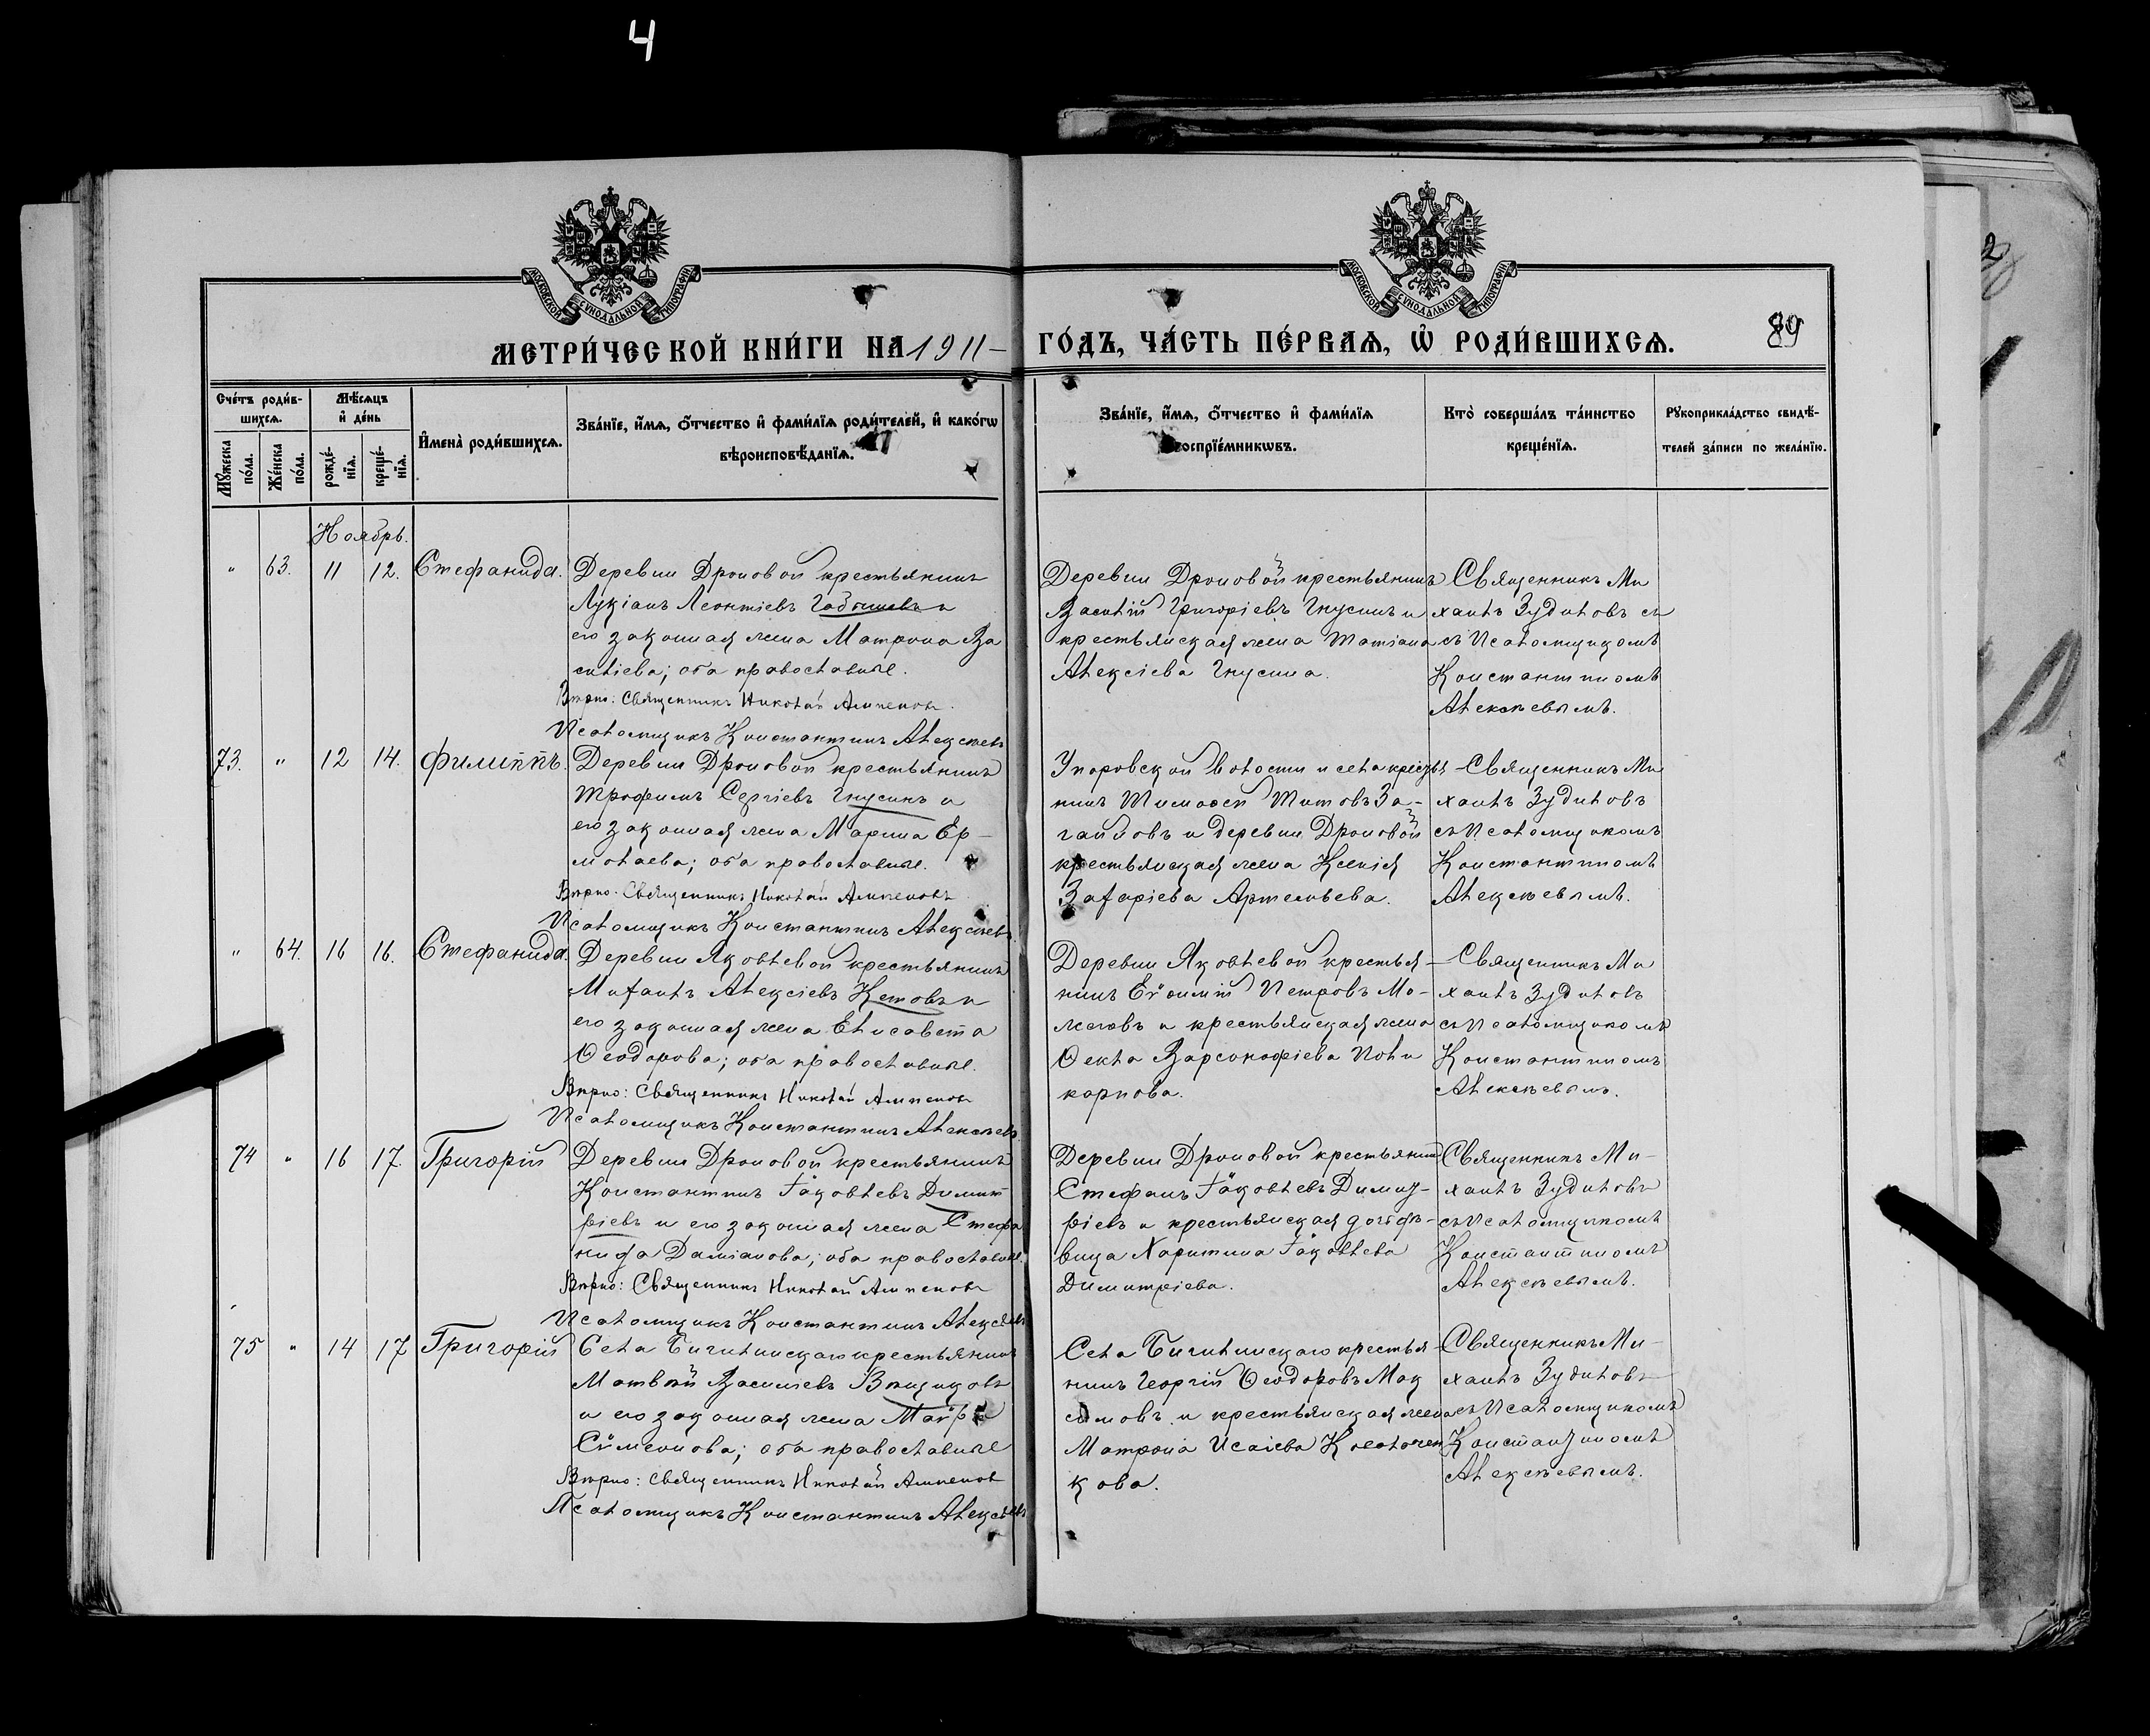 4
МОСКОВСКОЙ СѴНОДАЛЬНОЙ ТИПОГРАФІИ
МОСКОВСКОЙ СѴНОДАЛЬНОЙ ТИПОГРАФІИ
МЕТРИ́ЧЕСКОЙ КНИ́ГИ НА 1911
ГО́ДЪ, ЧА́СТЬ ПЕ́РВАѦ, Ѡ҆ РОДИ́ВШИХСѦ.
89
Сче́тъ роди́в-
шихсѧ.
Мꙋ́жеска
по́ла.
Же́нска
по́ла.
Мѣ́сѧцъ
и҆ де́нь
рожде́-
нїѧ.
креще́-
нїѧ.
И҆мена̀ роди́вшихсѧ.
Зва́нїе, и҆́мѧ, ѻ҆́тчество и҆ фами́лїѧ роди́телей, и҆ како́гѡ
вѣроисповѣ́данїѧ.
Зва́нїе, и҆́мѧ, ѻ҆́тчество и҆ фами́лїѧ
воспрїе́мникѡвъ.
Кто̀ соверша́лъ та́инство
креще́нїѧ.
Рꙋкоприкла́дство свидѣ́-
телей за́писи по жела́нїю.
Ноябрь.
" 63. 11 12. Стефанида.
Деревни Дроновой крестьянинъ
Лукіанъ Леонтіевъ и
его законная жена Матрона Ва
силіева; оба православные.
Вѣрно: Священникъ Николай
Псаломщикъ Константинъ Алексѣевъ
Деревни Дроновой крестьянинъ
Василій Григорьевъ Гнусинъ и
крестьянская жена Татіана
Алексіева Гнусина.
Священникъ Ми
хаилъ Зудиловъ съ
съ Псаломщикомъ
Константиномъ
Алексѣевымъ.
73. " 12 14. Филиппъ.
Деревни Дроновой крестьянинъ
Трофимъ Сергіевъ Гнусинъ и
его законная жена Марина Ер-
молаева; оба православные.
Вѣрно: Священникъ Николай
Псаломщикъ Константинъ Алексѣевъ.
Упоровской волости и села кресть
нинъ Тимоѳей Титовъ За-
и деревни Дроновой
крестьянская жена Ксенія
Захаріева Артемьева.
Священникъ Ми
хаилъ Зудиловъ
съ Псаломщикомъ
Константиномъ
Алексѣевымъ.
" 64. 16 16. Стефанида.
Деревни Яковлевой крестьянинъ
Михаилъ Алексіевъ Кетовъ и
его законная жена Елисавета
Ѳеодорова; оба православные.
Вѣрно: Священникъ Николай
Псаломщикъ Константинъ Алексѣевъ.
Деревни Яковлевой крестья-
нинъ Евѳимій Петровъ Мо-
и крестьянская жена
Ѳекла Варсонофіева Поли
карпова.
Священникъ Ми
хаилъ Зудиловъ
съ Псаломщикомъ
Константиномъ
Алексѣевымъ.
74 " 16 17. Григорій
Деревни Дроновой крестьянинъ
Константинъ Іаковлевъ Димит
ріевъ и его законная жена Стефа
нида Даміанова; оба православные.
Вѣрно: Священникъ Николай
Псаломщикъ Константинъ Алексѣевъ
Деревни Дроновой крестьянинъ
Стефанъ Іаковлевъ Димит-
ріевъ и крестьянская дочь дѣ-
вица Харитина Іаковлева
Димитріева.
Священникъ Ми-
хаилъ Зудиловъ
съ Псаломщикомъ
Константиномъ
Алексѣевымъ.
75 " 14 17 Григорій
Села Бигилинскаго крестьянинъ
Матвѣй Васильевъ
и его законная жена Мавра
Сѵмеонова; оба православные
Вѣрно: Священникъ Николай
Псаломщикъ Константинъ Алексѣевъ
Села Бигилинскаго крестья-
нинъ Георгій Ѳеодоровъ Мак
симовъ и крестьянская жена
Матрона Исаіева
кова.
Священникъ Ми-
хаилъ Зудиловъ
съ Псаломщикомъ
Константиномъ
Алексѣевымъ.